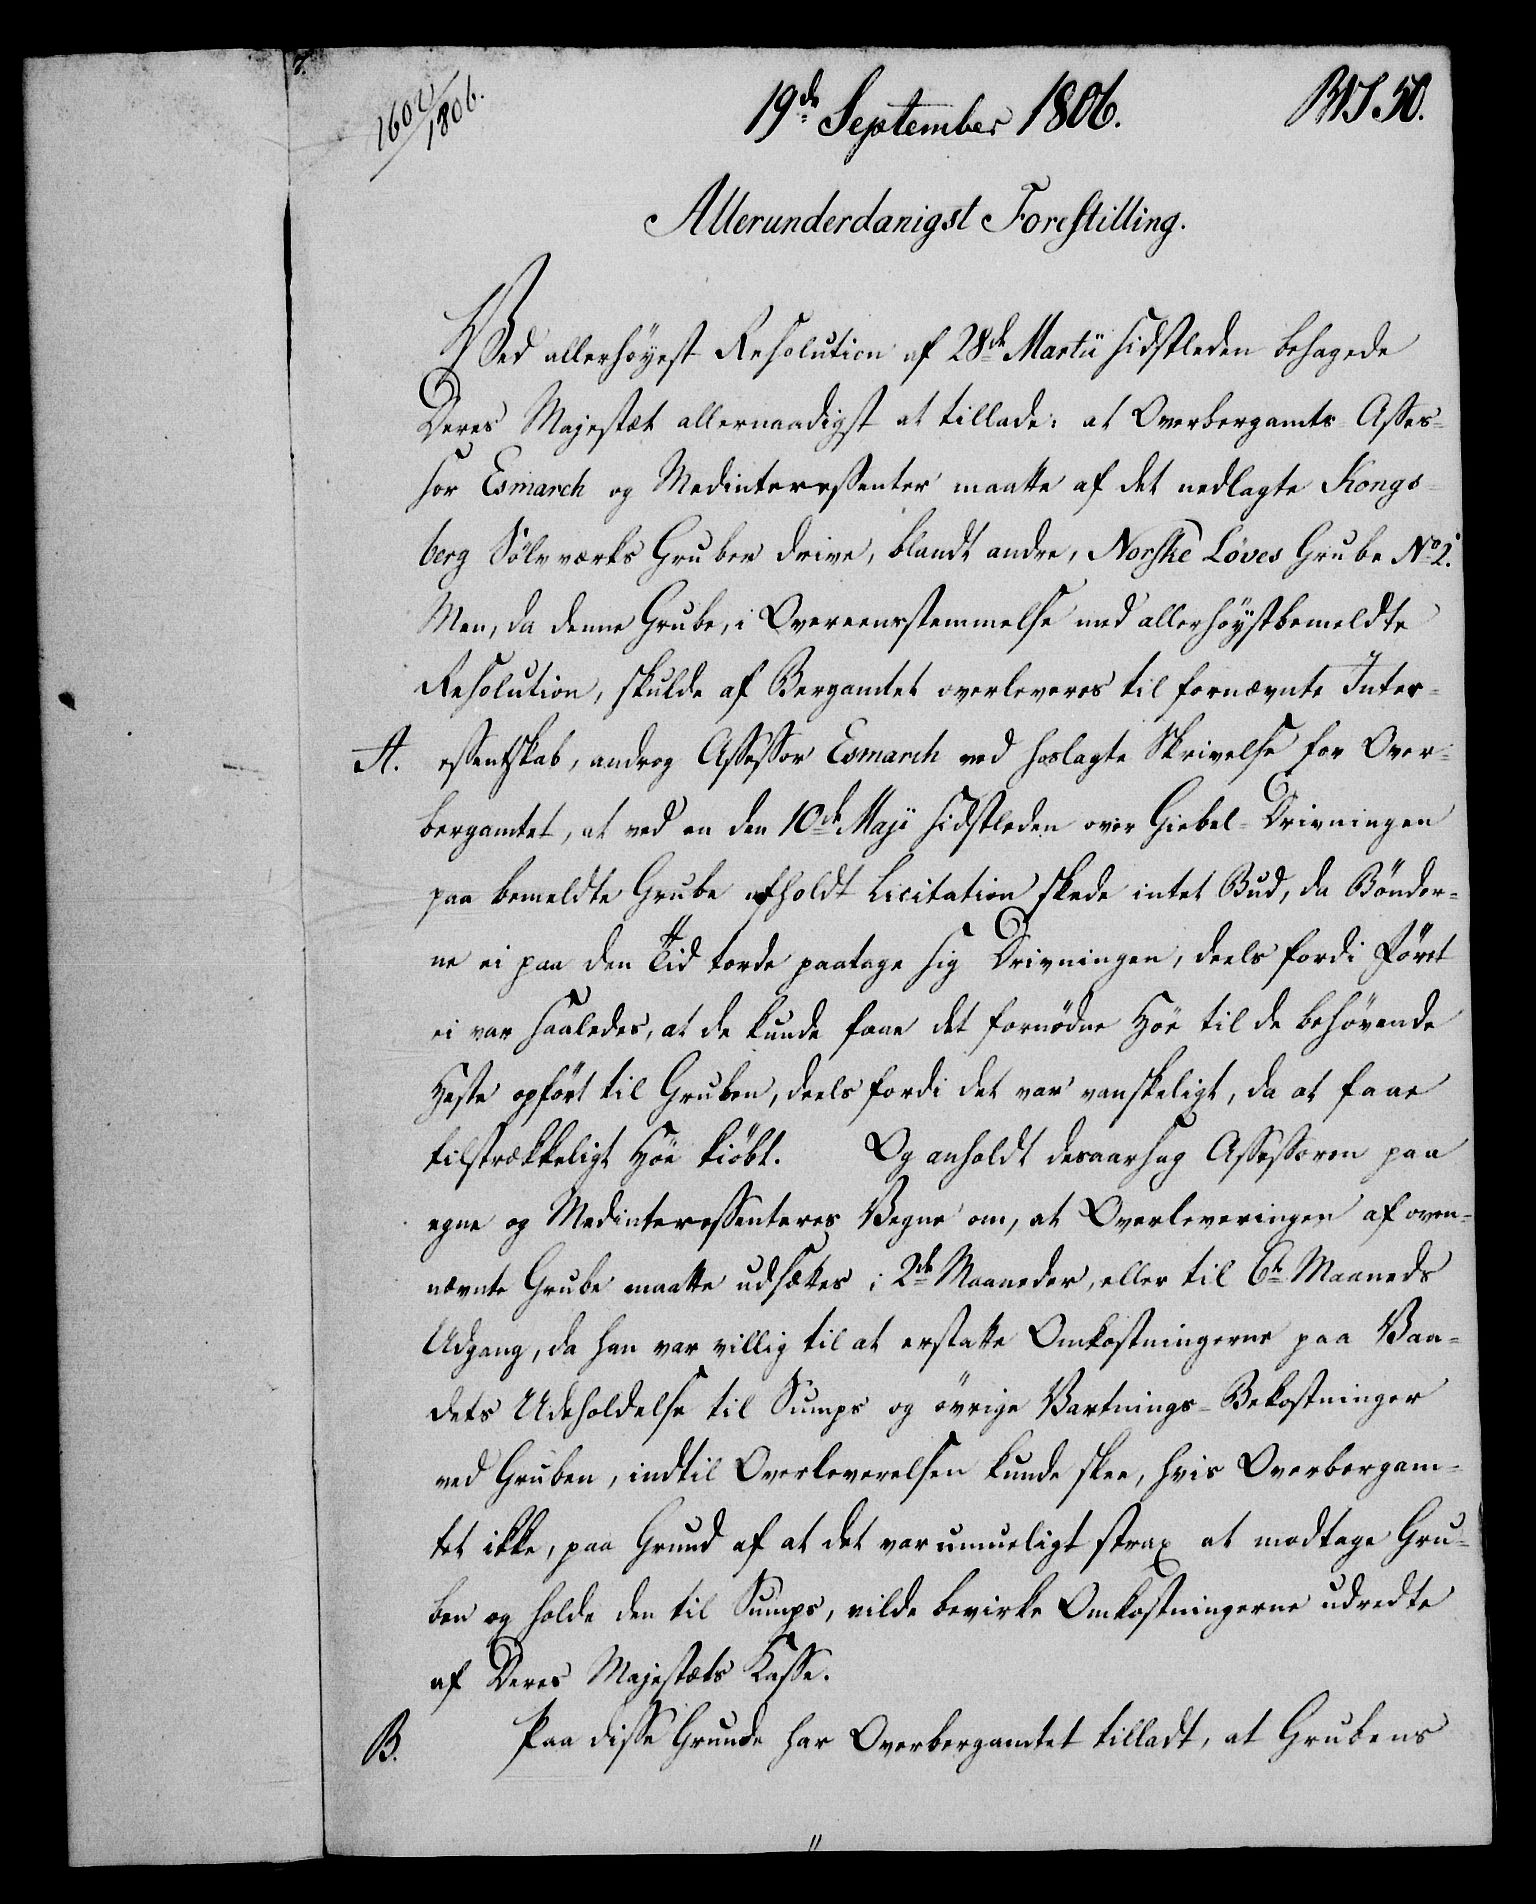 1602/1806.
19de September 1806.
Allerunderdanigst Forestilling.
Ved allerhöyest Resolution af 28de Martii sidstleden behagede
Deres Majestæt allernaadigst at tillade: at Overbergamts Asses-
sor Esmarch og Medinteressenter maatte af det nedlagte Kongs-
berg Sölvværks Gruber drive, blandt andre, Norske Löves Grube No 2.
Men, da denne Grube, i Overeensstemmelse med allerhöystbemeldte
Resolution, skulde af Bergamtet overleveres til fornævnte Inter-
A. essentskab, androg Assessor Esmarch ved hoslagte Skrivelse for Over-
bergamtet, at ved en den 10de Maji sidstleden over Giebel-Drivningen
paa bemeldte Grube afholdt Licitation skede intet Bud, da Bönder-
ne ei paa den Tid torde paatage sig Drivningen, deels fordi Föret
ei var saaledes, at de kunde faae det fornödne Höe til de behövende
Heste opfört til Gruben, deels fordi det var vanskeligt, da at faae
tilstrækkeligt Höe kiöbt. Og anholdt desaarsag Assessoren paa
egne og Medinteressenteres Vegne om, at Overleveringen af oven-
nævnte Grube maatte udsættes i 2de Maaneder, eller til 6te Maaneds
Udgang, da han var villig til at erstatte Omkostningerne paa Van-
dets Udeholdelse til Sumps og övrige Vartnings-Bekostninger
ved Gruben, indtil Overleverelsen kunde skee, hvis Overbergam-
tet ikke, paa Grund af at det var umueligt strax at modtage Gru-
ben og holde den til Sumps, vilde bevirke Omkostningerne udredte
af Deres Majestæts Kasse.
B. Paa disse Grunde har Overbergamtet tilladt, at Grubens